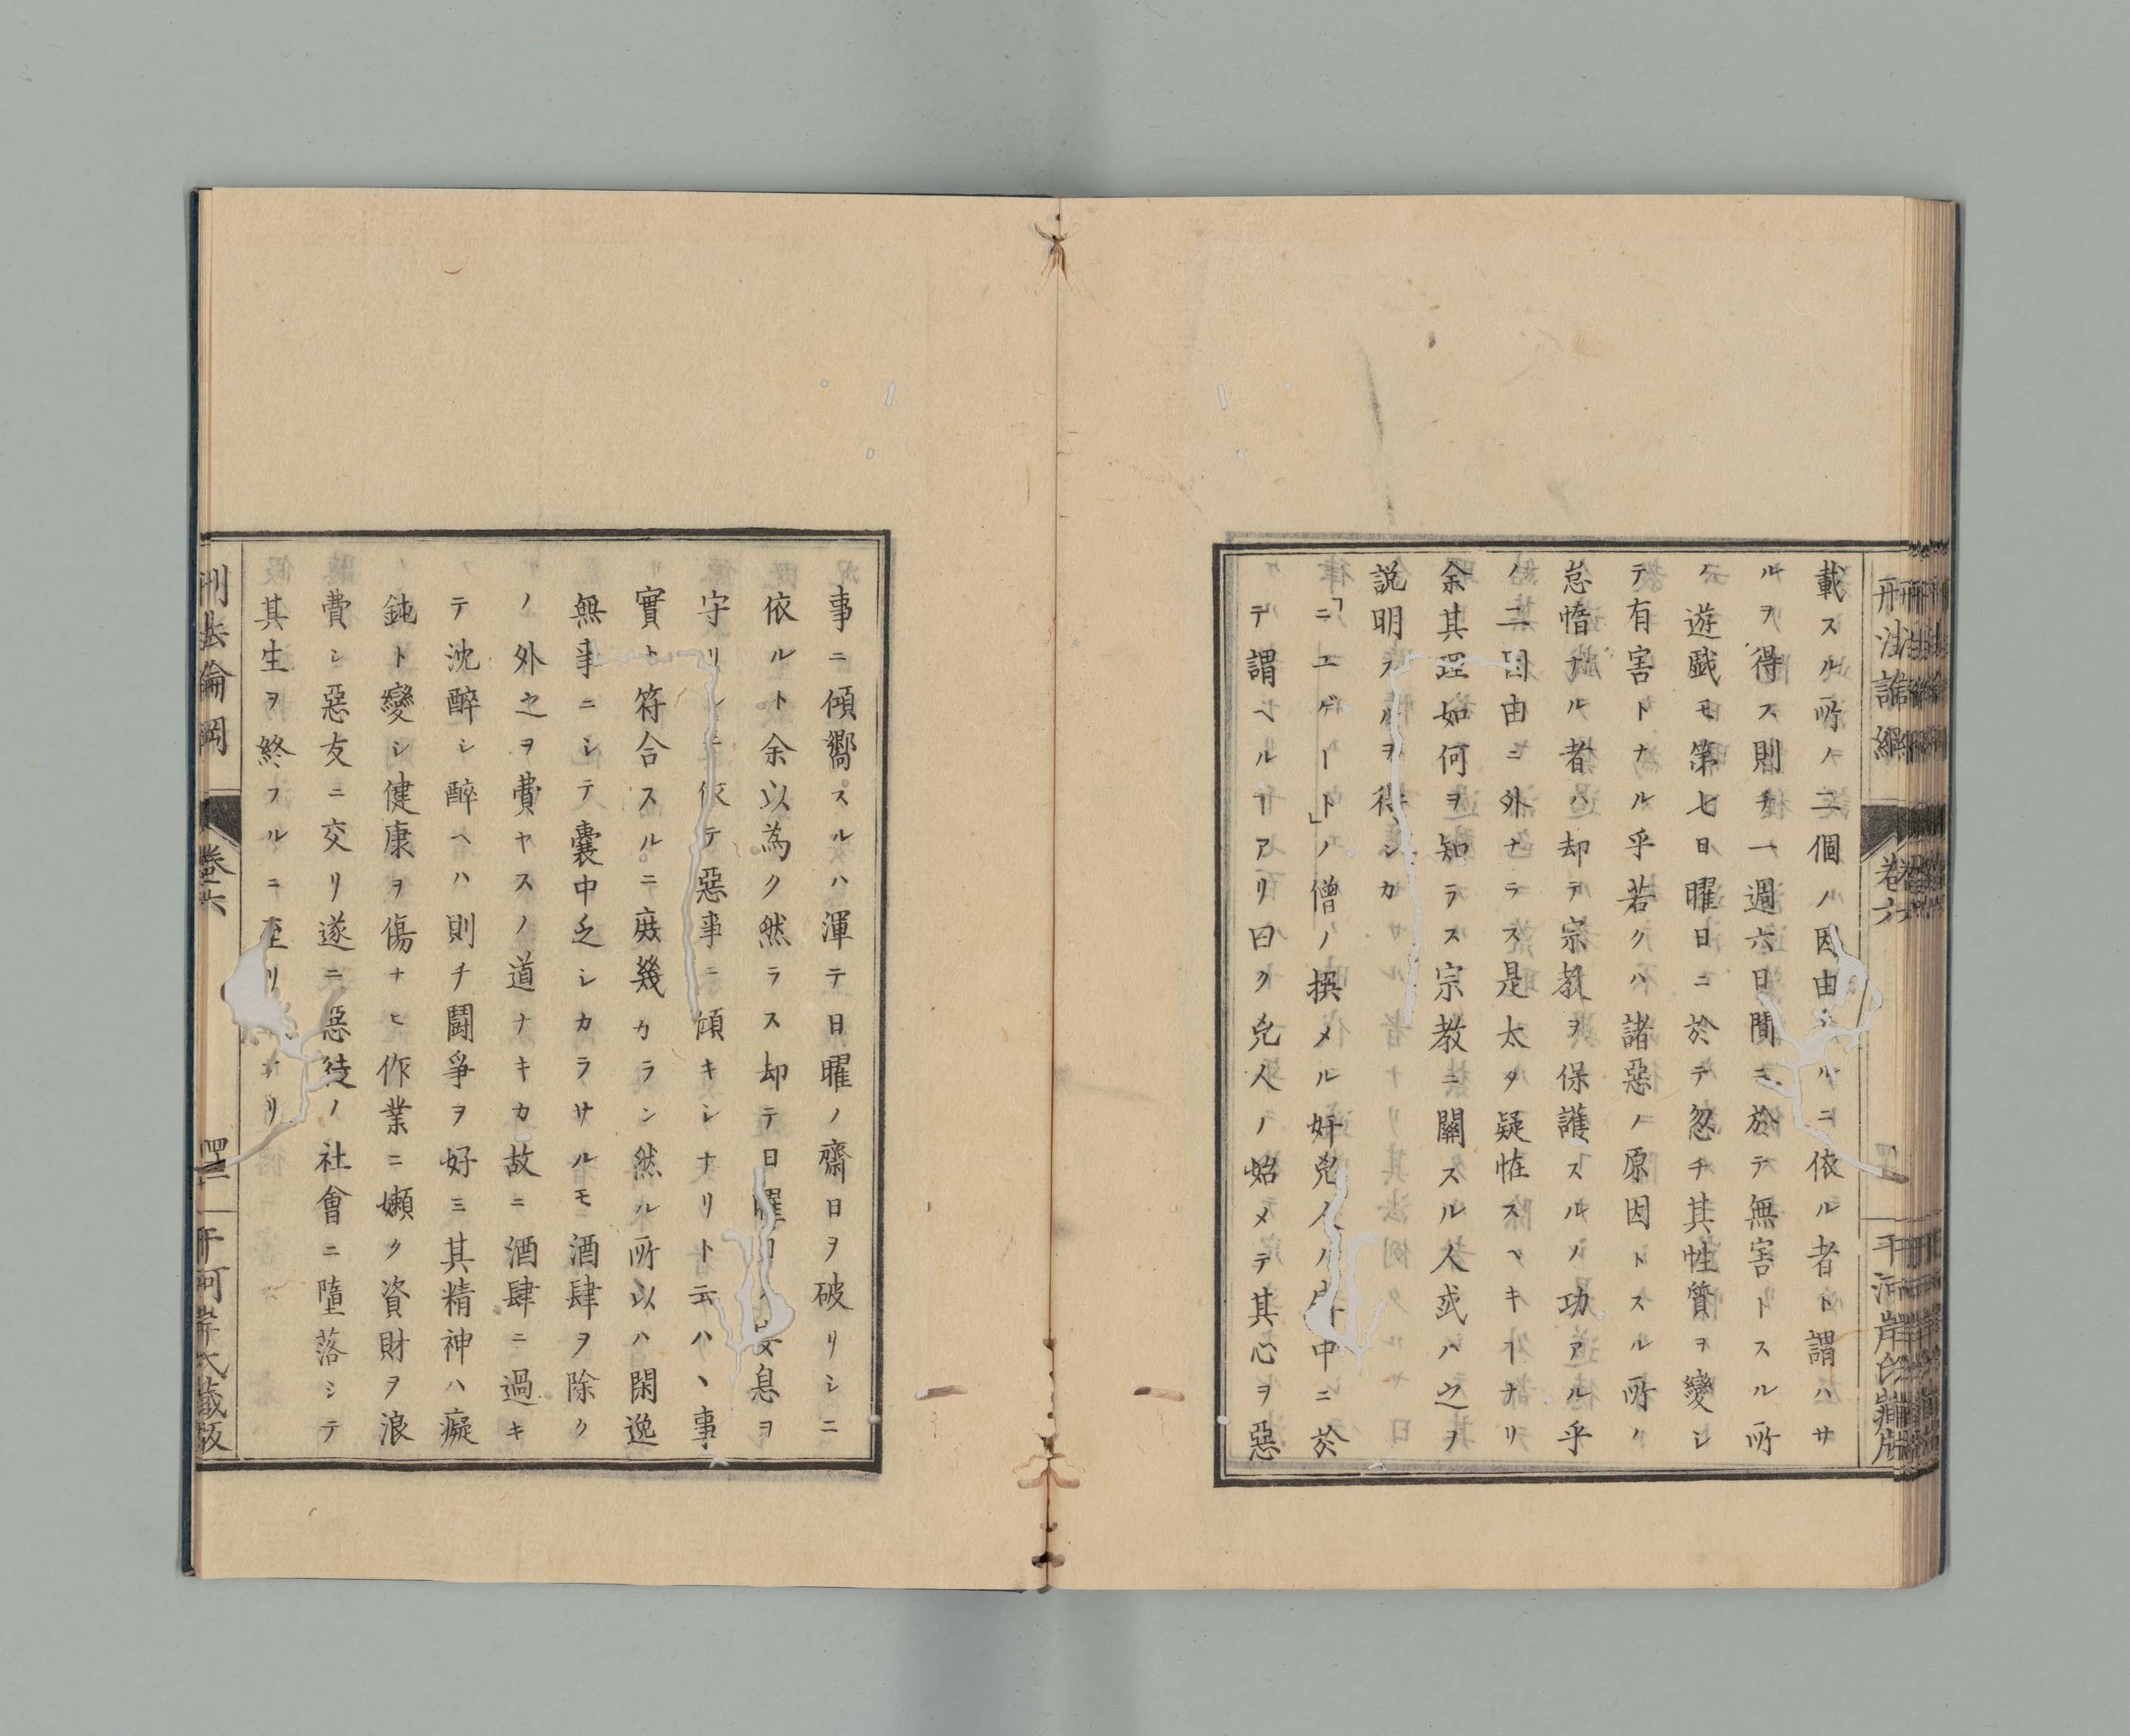 載スル所ノ二個ノ因由ルニ依ル者ト謂ハサ
ルヲ得ス則チ一週六日間ニ於テ無害トスル所
ノ遊戯モ第七日曜日ニ於テ忽チ其性質ヲ變シ
テ有害トナル乎若クハ諸惡ノ原因トスル所ノ
怠惰ナル者ハ却テ宗教ヲ保護スルノ功アル乎
ノ二因由ニ外ナラス是太タ疑恠スヘキーナリ
余其理如何ヲ知ラス宗教ニ關スル人或ハ之ヲ
説明スルヲ得シカ
「ニユゲート」ノ僧ノ撰メル奸兇人ノ中ニ於
テ謂ヘルヿアリ曰ク兇人ノ始メテ其心ヲ惡
事ニ傾嚮スルハ渾テ日曜ノ齋日ヲ破リシニ
依ルト余以為ク然ラス却テ日曜日ノ安息ヲ
守リシニ依テ惡事ニ傾キシナリト云ハヽ事
實ト符合スルニ庶幾カラン然ル所以ハ閑逸
無事ニシテ囊中乏シカラサルモ酒肆ヲ除ク
ノ外之ヲ費ヤスノ道ナキカ故ニ酒肆ニ過キ
テ沈醉シ醉ヘハ則チ鬪爭ヲ好ミ其精神ハ癡
鈍ト變シ健康ヲ傷ナヒ作業ニ嬾ク資財ヲ浪
費シ惡友ニ交リ遂ニ惡徒ノ社會ニ墮落シテ
其生ヲ終フルニ至リリ
刑法論綱
卷六